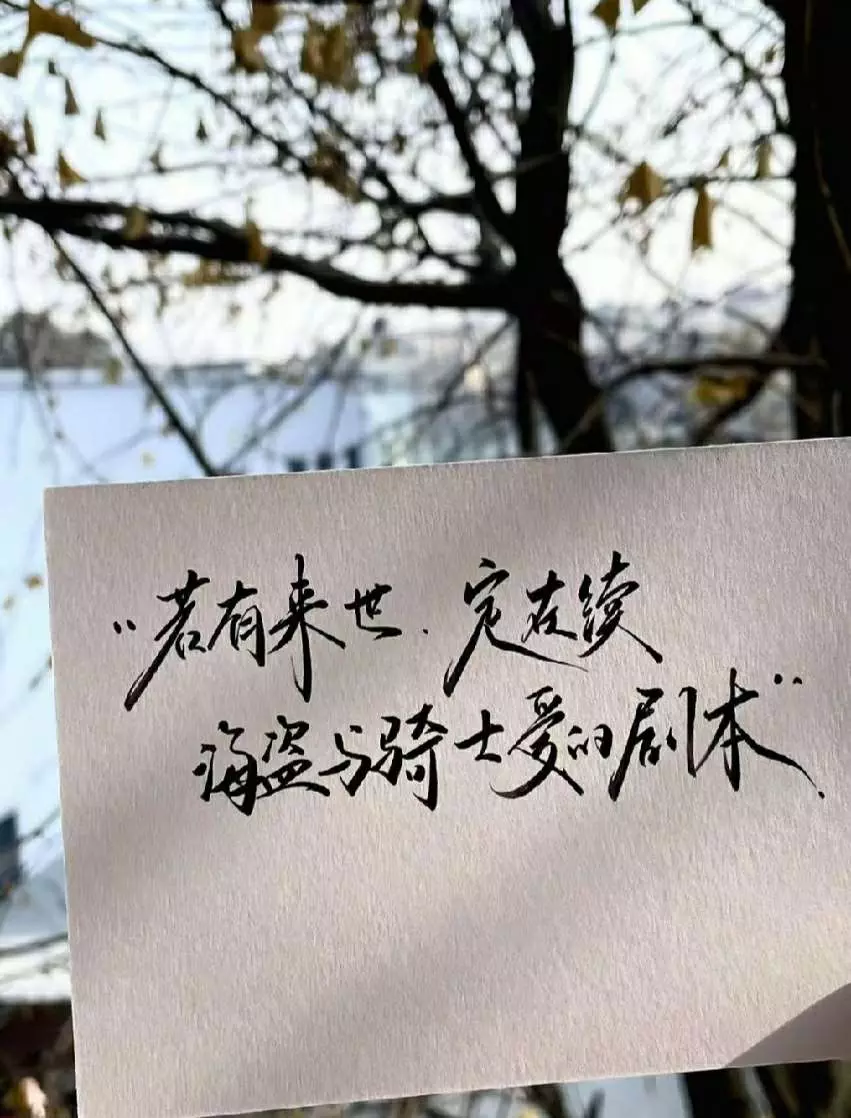 “若有来世．定在续
海盗与骑士爱的剧本”．